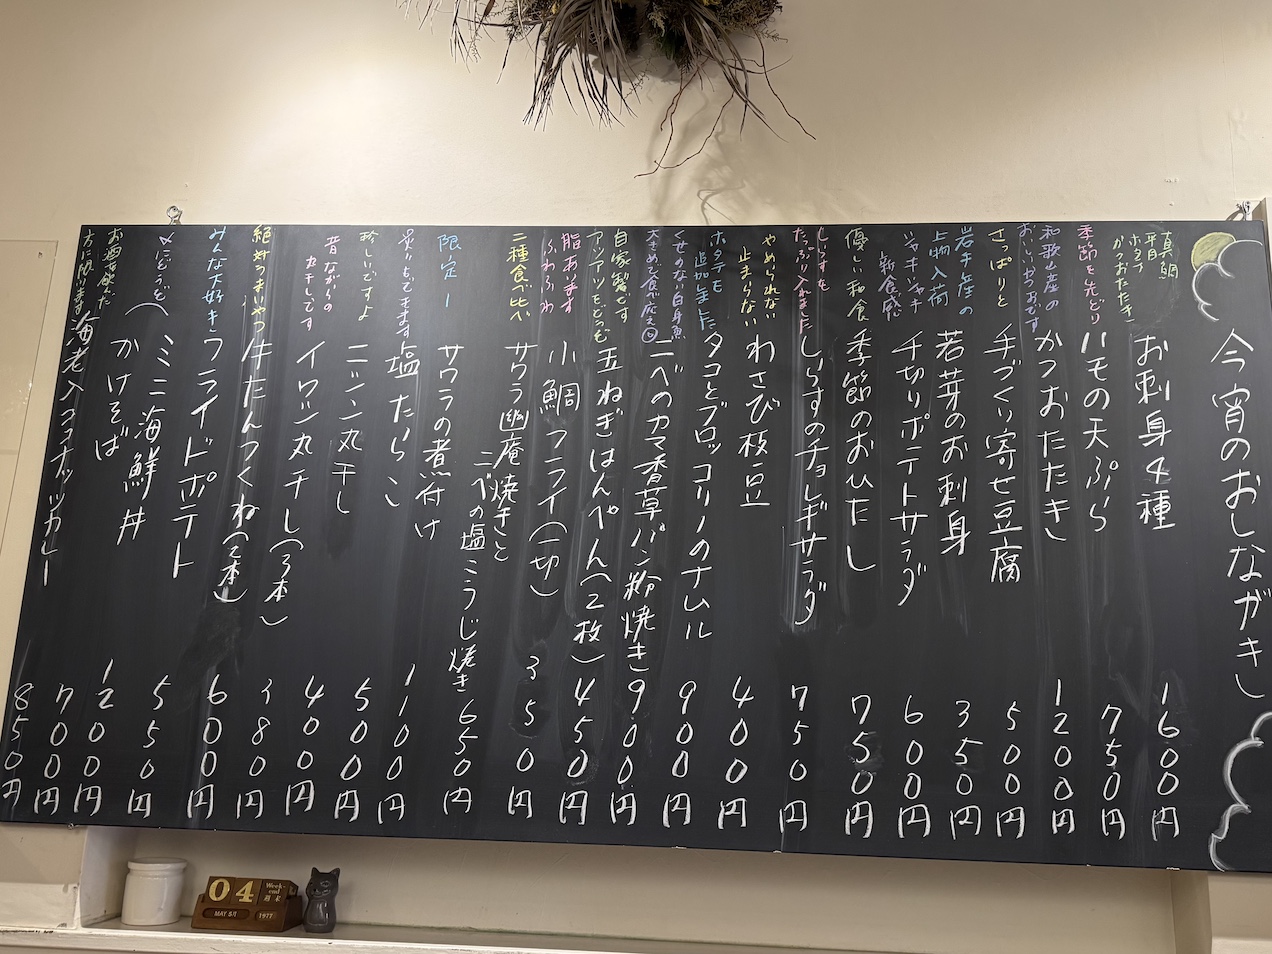 今宵のおしながき
真鯛
平目
ホタテ
かつおたたき
お刺身4種
1600円
季節を先どり
ハモの天ぷら
750円
和歌山産の
おいしいかつおです
かつおたたき
1200円
さっぱりと
手づくり寄せ豆腐
500円
岩手産の
上物入荷
若芽のお刺身
350円
シャキシャキ
新食感
千切りポテトサラダ
600円
優しい和食
季節のおひたし
750円
しらすを
たっぷり入れました
しらすのチョレギサラダ
750円
やめられない
止まらない
わさび枝豆
400円
ホタテも
追加しました
タコとブロッコリーのナムル
900円
くせのない白身魚
大きめで食べ応え◎
ニベのカマ香草パン粉焼き
900円
自家製です
アツアツをどうぞ
玉ねぎはんぺん(2枚)
450円
脂あります
ふわふわ
小鯛フライ(一切)
350円
二種食べ比べ
サワラ幽庵焼きと
ニベの塩こうじ焼き
650円
限定1
サワラの煮付け
炭いもできます
塩たらこ
1100円
珍しいですよ
ニシン丸干し
500円
昔ながらの
丸干しです
イワシ丸干し(3本)
400円
絶対うまいやつ
牛たんつくね(2本)
380円
みんな大好き
フライドポテト
600円
〆にどうぞ
ミニ海鮮丼
かけそば
550円
1200円
お酒を飲んだ
方に限ります
海老入ココナッツカレー
700円
850円
04
Week-
end
週末
MAY 5月
1977